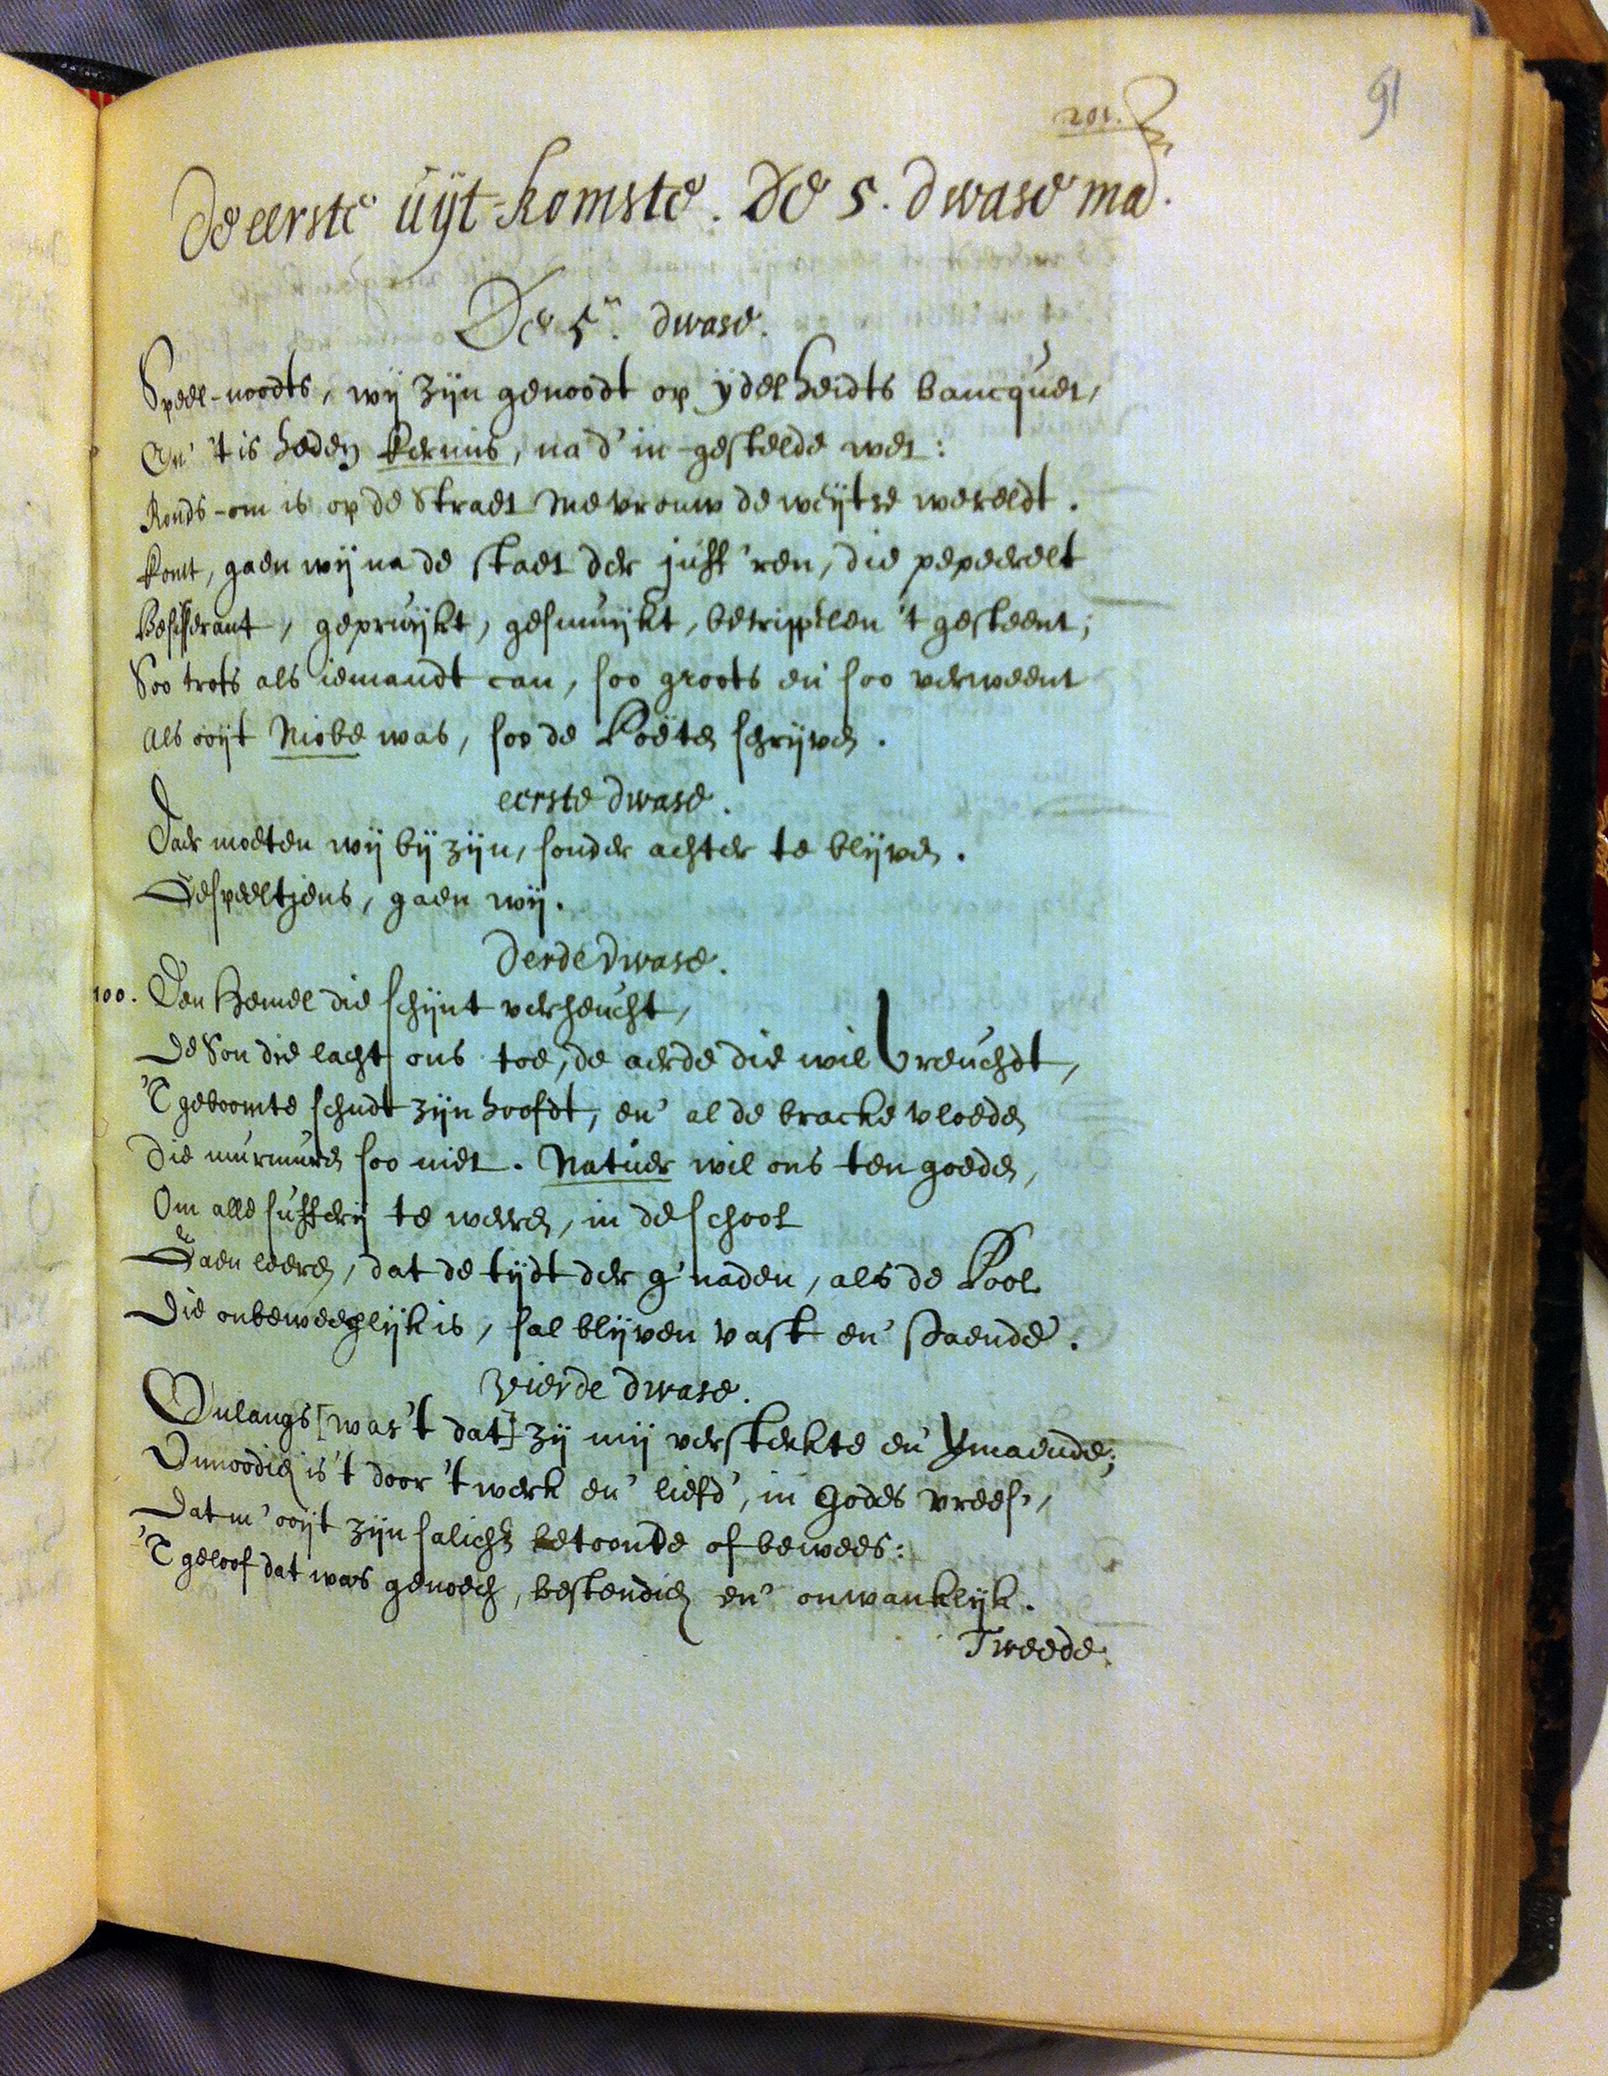 201.
91
De eerste uÿt-komste. De 5. dwase ma.
De 5.n dwase.
Speel-noodts, wij zijn genoodt op ijdelheidts bancquet,
En' 't is heden kermis, na d' in-gestelde wet:
Ronds-om is op de straet Mevrouw de weijtse wereldt.
komt, gaen wij na de stadt der juff'ren, die gepeerelt
geprüijkt, gesmüijkt, betripplen 't gesteent;
Soo trots als iemandt can, soo groots en' soo verweent
Als ooijt Niobe was, soo de Poëten schrijven.
eerste dwase.
Daer moeten wij bij zijn, sonder achter te blijven.
Gespeeltjens, gaen wij.
Derde dwase.
100. Den Hemel die schijnt verheucht,
De Son die lacht ons toe, de aerde die wil vreuchdt,
'T geboomte schudt zijn hoofdt, en' al de bracke vloeden
Die murmuren soo niet. Natuer wil ons ten goeden,
Om alle sufferij te weeren, in de school
Gaen leeren, dat de tijdt der g'naden, als de Pool
Die onbeweeglijk is, sal blijven vast en' staende.
Vierde dwase.
Onlangs [was 't dat] zij mij versterkte en' vermaende;
Onnoodich is 't door 't werk en' liefd', in Godes vrees',
Dat m' ooijt zijn salicht betoonde of bewees:
'T geloof dat was genoech, bestendich en' onwanklijk.
Tweede.